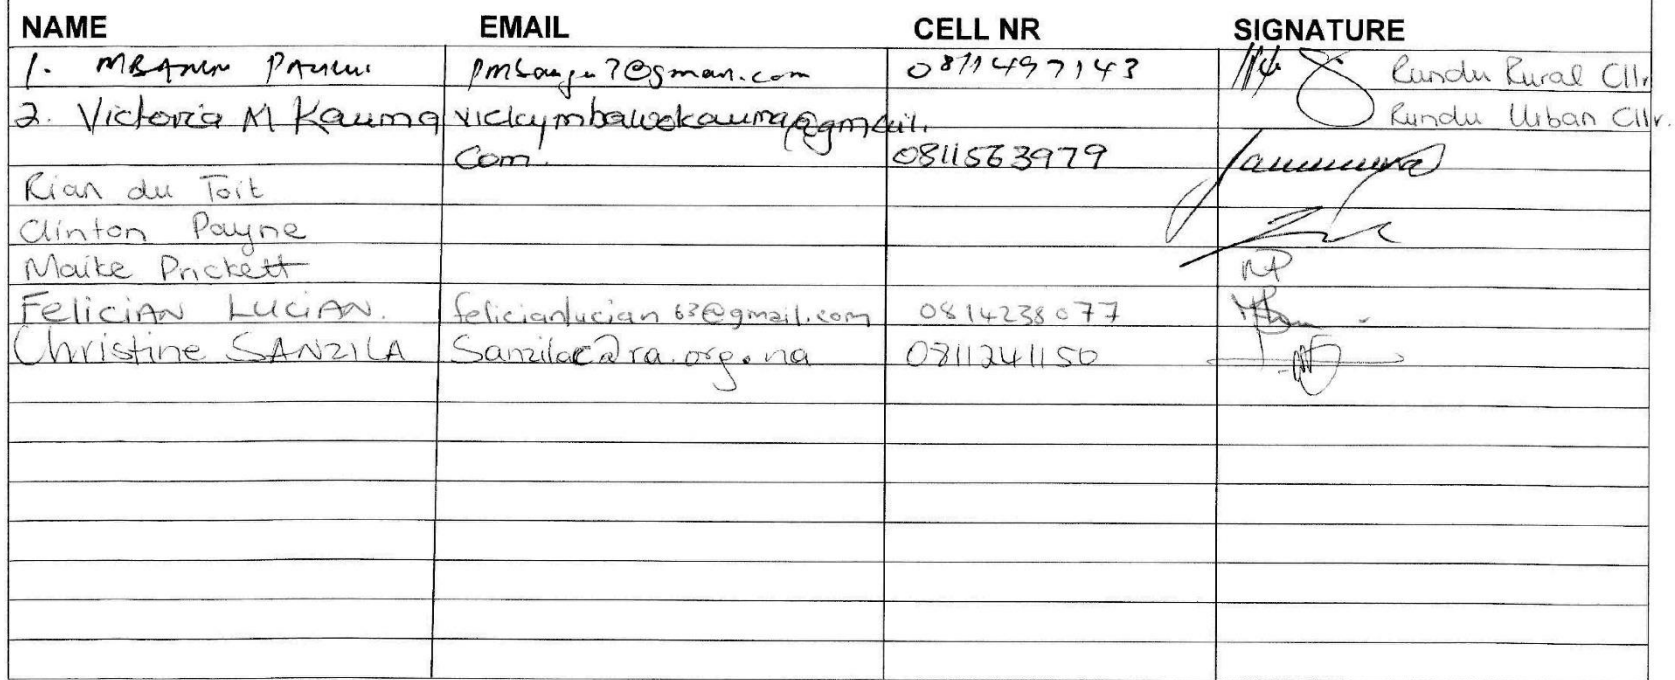 NAME EMAIL CELL NR SIGNATURE
1. 0811497143 Rundu Rural Cllr
2. Victoria M Kauma vickymbawokauma@gmail. Rundu Urban Cllr.
com. 0811563979
Rian du Toit
Clinton Payne
Maike Prickett MP
FeliciAN LUCIAN. felicianlucian63@gmail.com 0814238077
Christine SANZILA Sanzilac@ra.org.na 0811241150